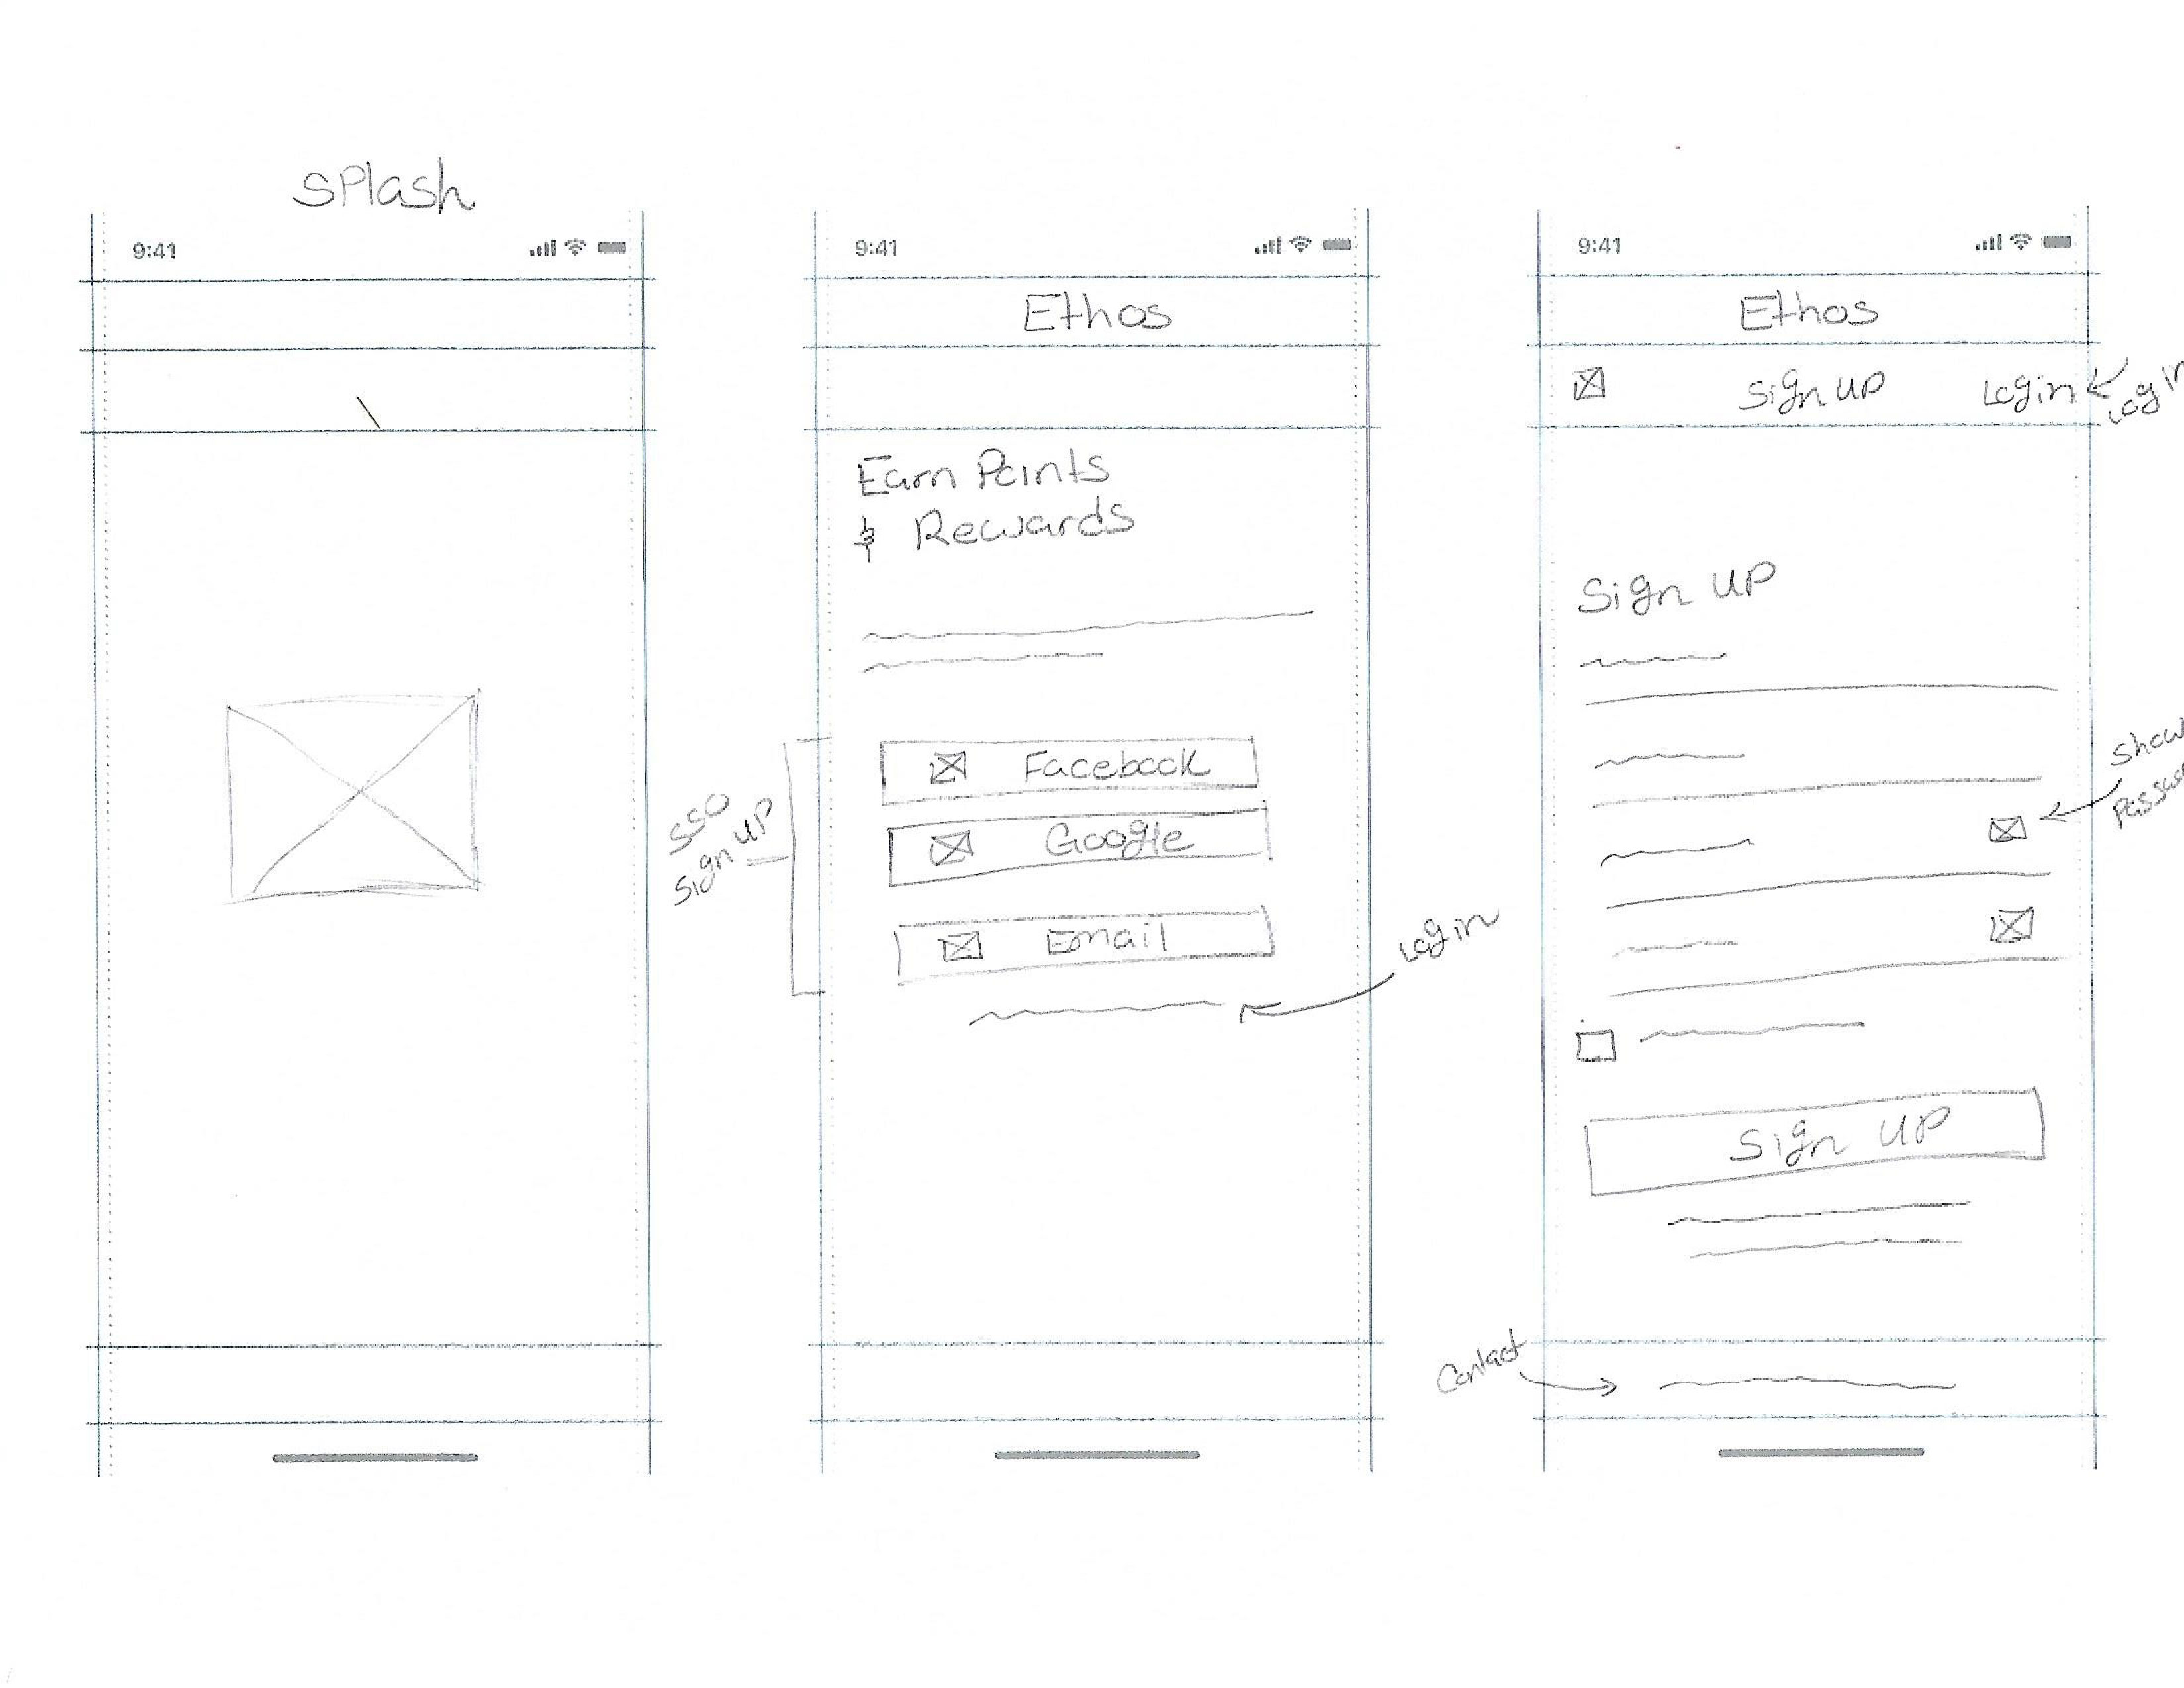 Splash
9:41
9:41
Ethos
Earn Points
& Rewards
SSO
Sign UP
Facebook
Google
Email
Login
9:41
Ethos
Sign UP
Login
Login
Sign UP
Show
Sign UP
Contact